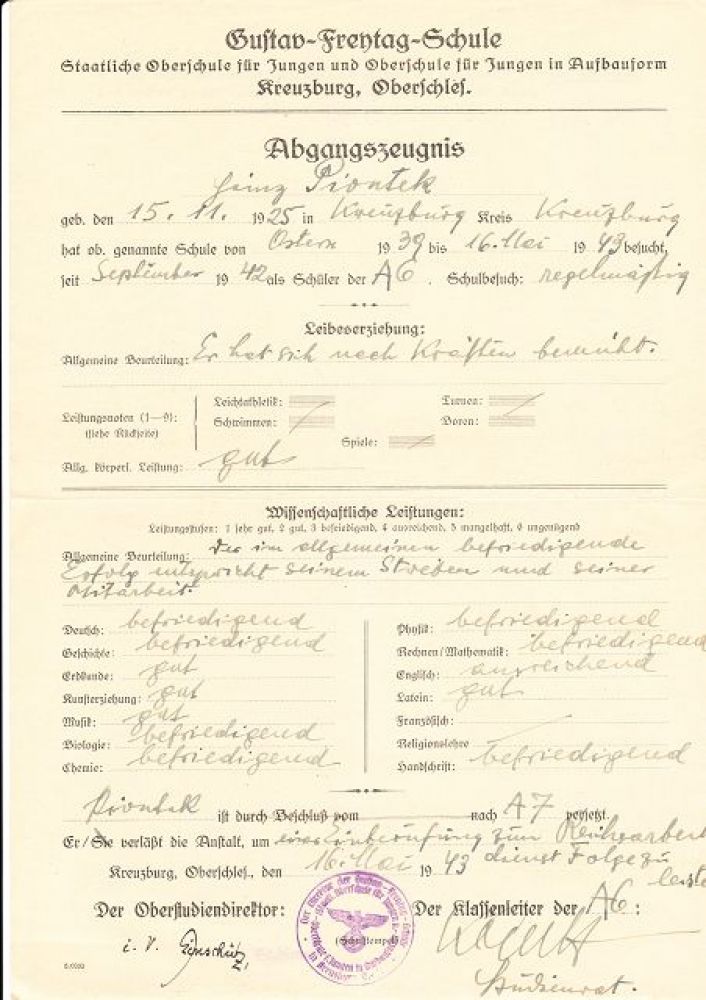 Gustav-Freytag-Schule
Staatliche Oberschule für Jungen und Oberschule für Jungen in Aufbauform
Kreuzburg, Oberschles.
Abgangszeugnis
Heinz Piontek
geb. den 15. 11. 1925 in Kreuzburg Kreis Kreuzburg
hat ob. genannte Schule von Ostern 1939 bis 16. Mai 1943 besucht,
seit September 1942 als Schüler der A6. Schulbesuch: regelmäßig
Leibeserziehung:
Allgemeine Beurteilung: Er hat sich nach Kräften bemüht.
Leistungsnoten (1—9):
(siehe Rückseite)
Leichtathletik:
Turnen:
Schwimmen:
Boxen:
Spiele:
Allg. körperl. Leistung: gut
Wissenschaftliche Leistungen:
Leistungsstufen: 1 sehr gut, 2 gut, 3 befriedigend, 4 ausreichend, 5 mangelhaft, 6 ungenügend
Allgemeine Beurteilung: Der im allgemeinen befriedigende
Erfolg entspricht seinem Streben und seiner
Mitarbeit.
Deutsch: befriedigend
Geschichte: befriedigend
Erdkunde: gut
Kunsterziehung: gut
Musik: gut
Biologie: befriedigend
Chemie: befriedigend
Physik: befriedigend
Rechnen/Mathematik: befriedigend
Englisch: ausreichend
Latein: gut
Französisch:
Religionslehre
Handschrift: befriedigend
Piontek ist durch Beschluß vom nach A7 versetzt.
Er/Sie verläßt die Anstalt, um einer Einberufung zum Reichsarbeits
dienst Folge zu
leisten
Kreuzburg, Oberschles., den 16. Mai 1943
Der Oberstudiendirektor:
Der Klassenleiter der A6:
i. V.
(Schulstempel)
Studienrat.